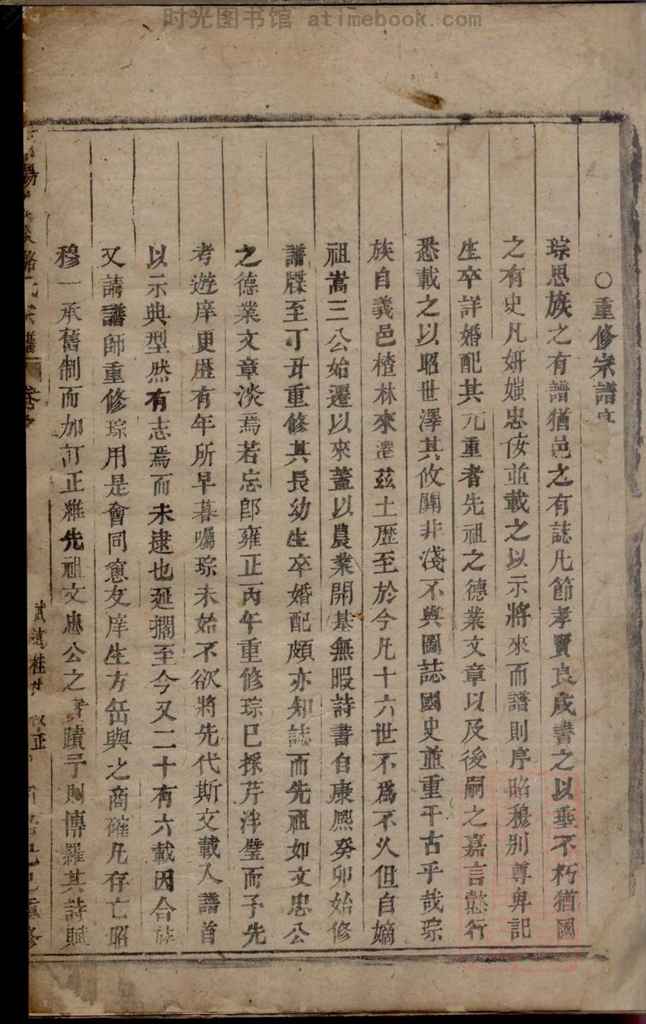 时光图书馆 atimebook.com
○重修宗譜文
琮思族之有譜猶邑之有誌凡節孝賢良咸書之以垂不朽猶國
之有史凡妍媸忠佞並載之以示將來而譜則序昭穆別尊卑記
生卒詳婚配其尤重者先祖之德業文章以及後嗣之嘉言懿行
悉載之以昭世澤其攸關非淺不與圖誌國史並重千古乎哉琮
族自義邑楂林來遷茲土歷至於今凡十六世不為不久但自嫡
祖嵩三公始遷以來蓋以農業開基無暇詩書自康熙癸卯始修
譜牒至丁丑重修其長幼生卒婚配頗亦知誌而先祖如文忠公
之德業文章淡焉若忘即雍正丙午重修琮已採芹泮璧而予先
考遊庠更歷有年所早暮囑琮未始不欲將先代斯文載入譜首
以示典型然有志焉而未逮也延擱至今又二十有六載因合族
又請譜師重修琮用是會同窓友庠生方岳與之商確凡存亡昭
穆一承舊制而加訂正雖先祖文忠公之書蹟予則博羅其詩賦
宗譜 卷
重修